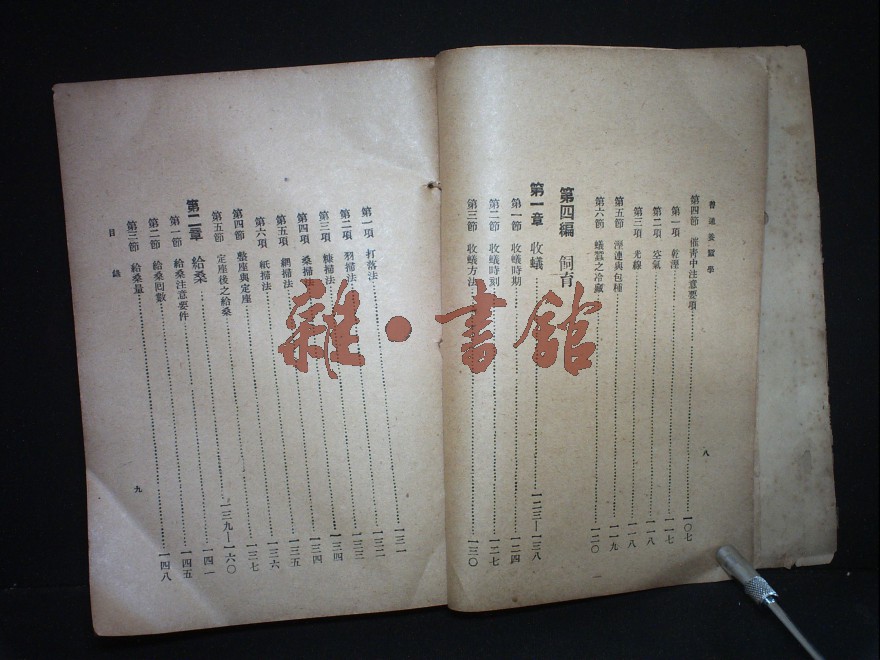 普通養蠶學
第四節 催青中注意要項 一〇七
第一項 乾溼 一一七
第二項 空氣 一一八
第三項 光線 一一八
第五節 溼連與包種 一一九
第六節 蟻蠶之冷藏 一二〇
第四編 飼育
第一章 收蟻 一二三—一三八
第一節 收蟻時期 一二四
第二節 收蟻時刻 一二七
第三節 收蟻方法 一三〇
八
第一項 打落法 一三一
第二項 羽掃法 一三三
第三項 糠掃法 一三四
第四項 桑掃法 一三四
第五項 網掃法 一三五
第六項 紙掃法 一三六
第四節 整座與定座 一三七
第五節 定座後之給桑
第二章 給桑 一三九—一六〇
第一節 給桑注意要件 一四一
第二節 給桑囘數 一四五
第三節 給桑量 一四八
目錄
九
雜·書館